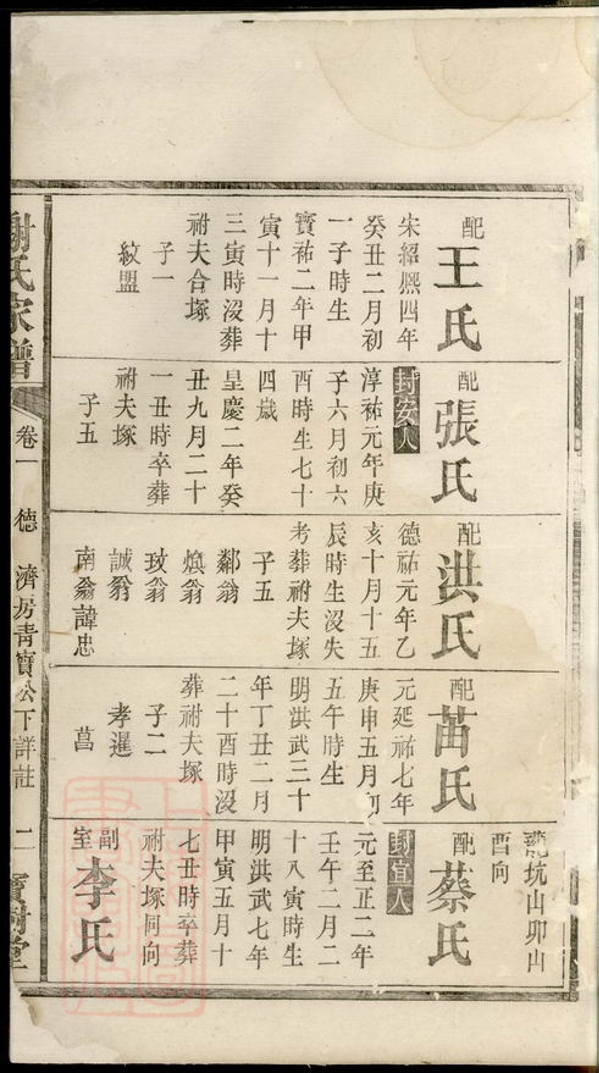 配
王氏
宋紹熙四年
癸丑二月初
一子時生
寶祐二年甲
寅十一月十
三寅時沒葬
祔夫合塚
子一
紋盟
配
張氏
封安人
淳祐元年庚
子六月初六
酉時生七十
四歲
皇慶二年癸
丑九月二十
一丑時卒葬
祔夫塚
子五
配
洪氏
德祐元年乙
亥十月十五
辰時生沒失
考葬祔夫塚
子五
鄰翁
煥翁
玫翁
誠翁
南翁諱忠
配
苗氏
元延祐七年
庚申五月初
五午時生
明洪武三十
年丁丑二月
二十酉時沒
葬祔夫塚
子二
孝暹
菖
龍坑山卯山
酉向
配
蔡氏
封宜人
元至正二年
壬午二月二
十八寅時生
明洪武七年
甲寅五月十
七丑時卒葬
祔夫塚同向
副室
李氏
謝氏家譜
卷一
德濟房青寶公下詳註
二
寶樹堂